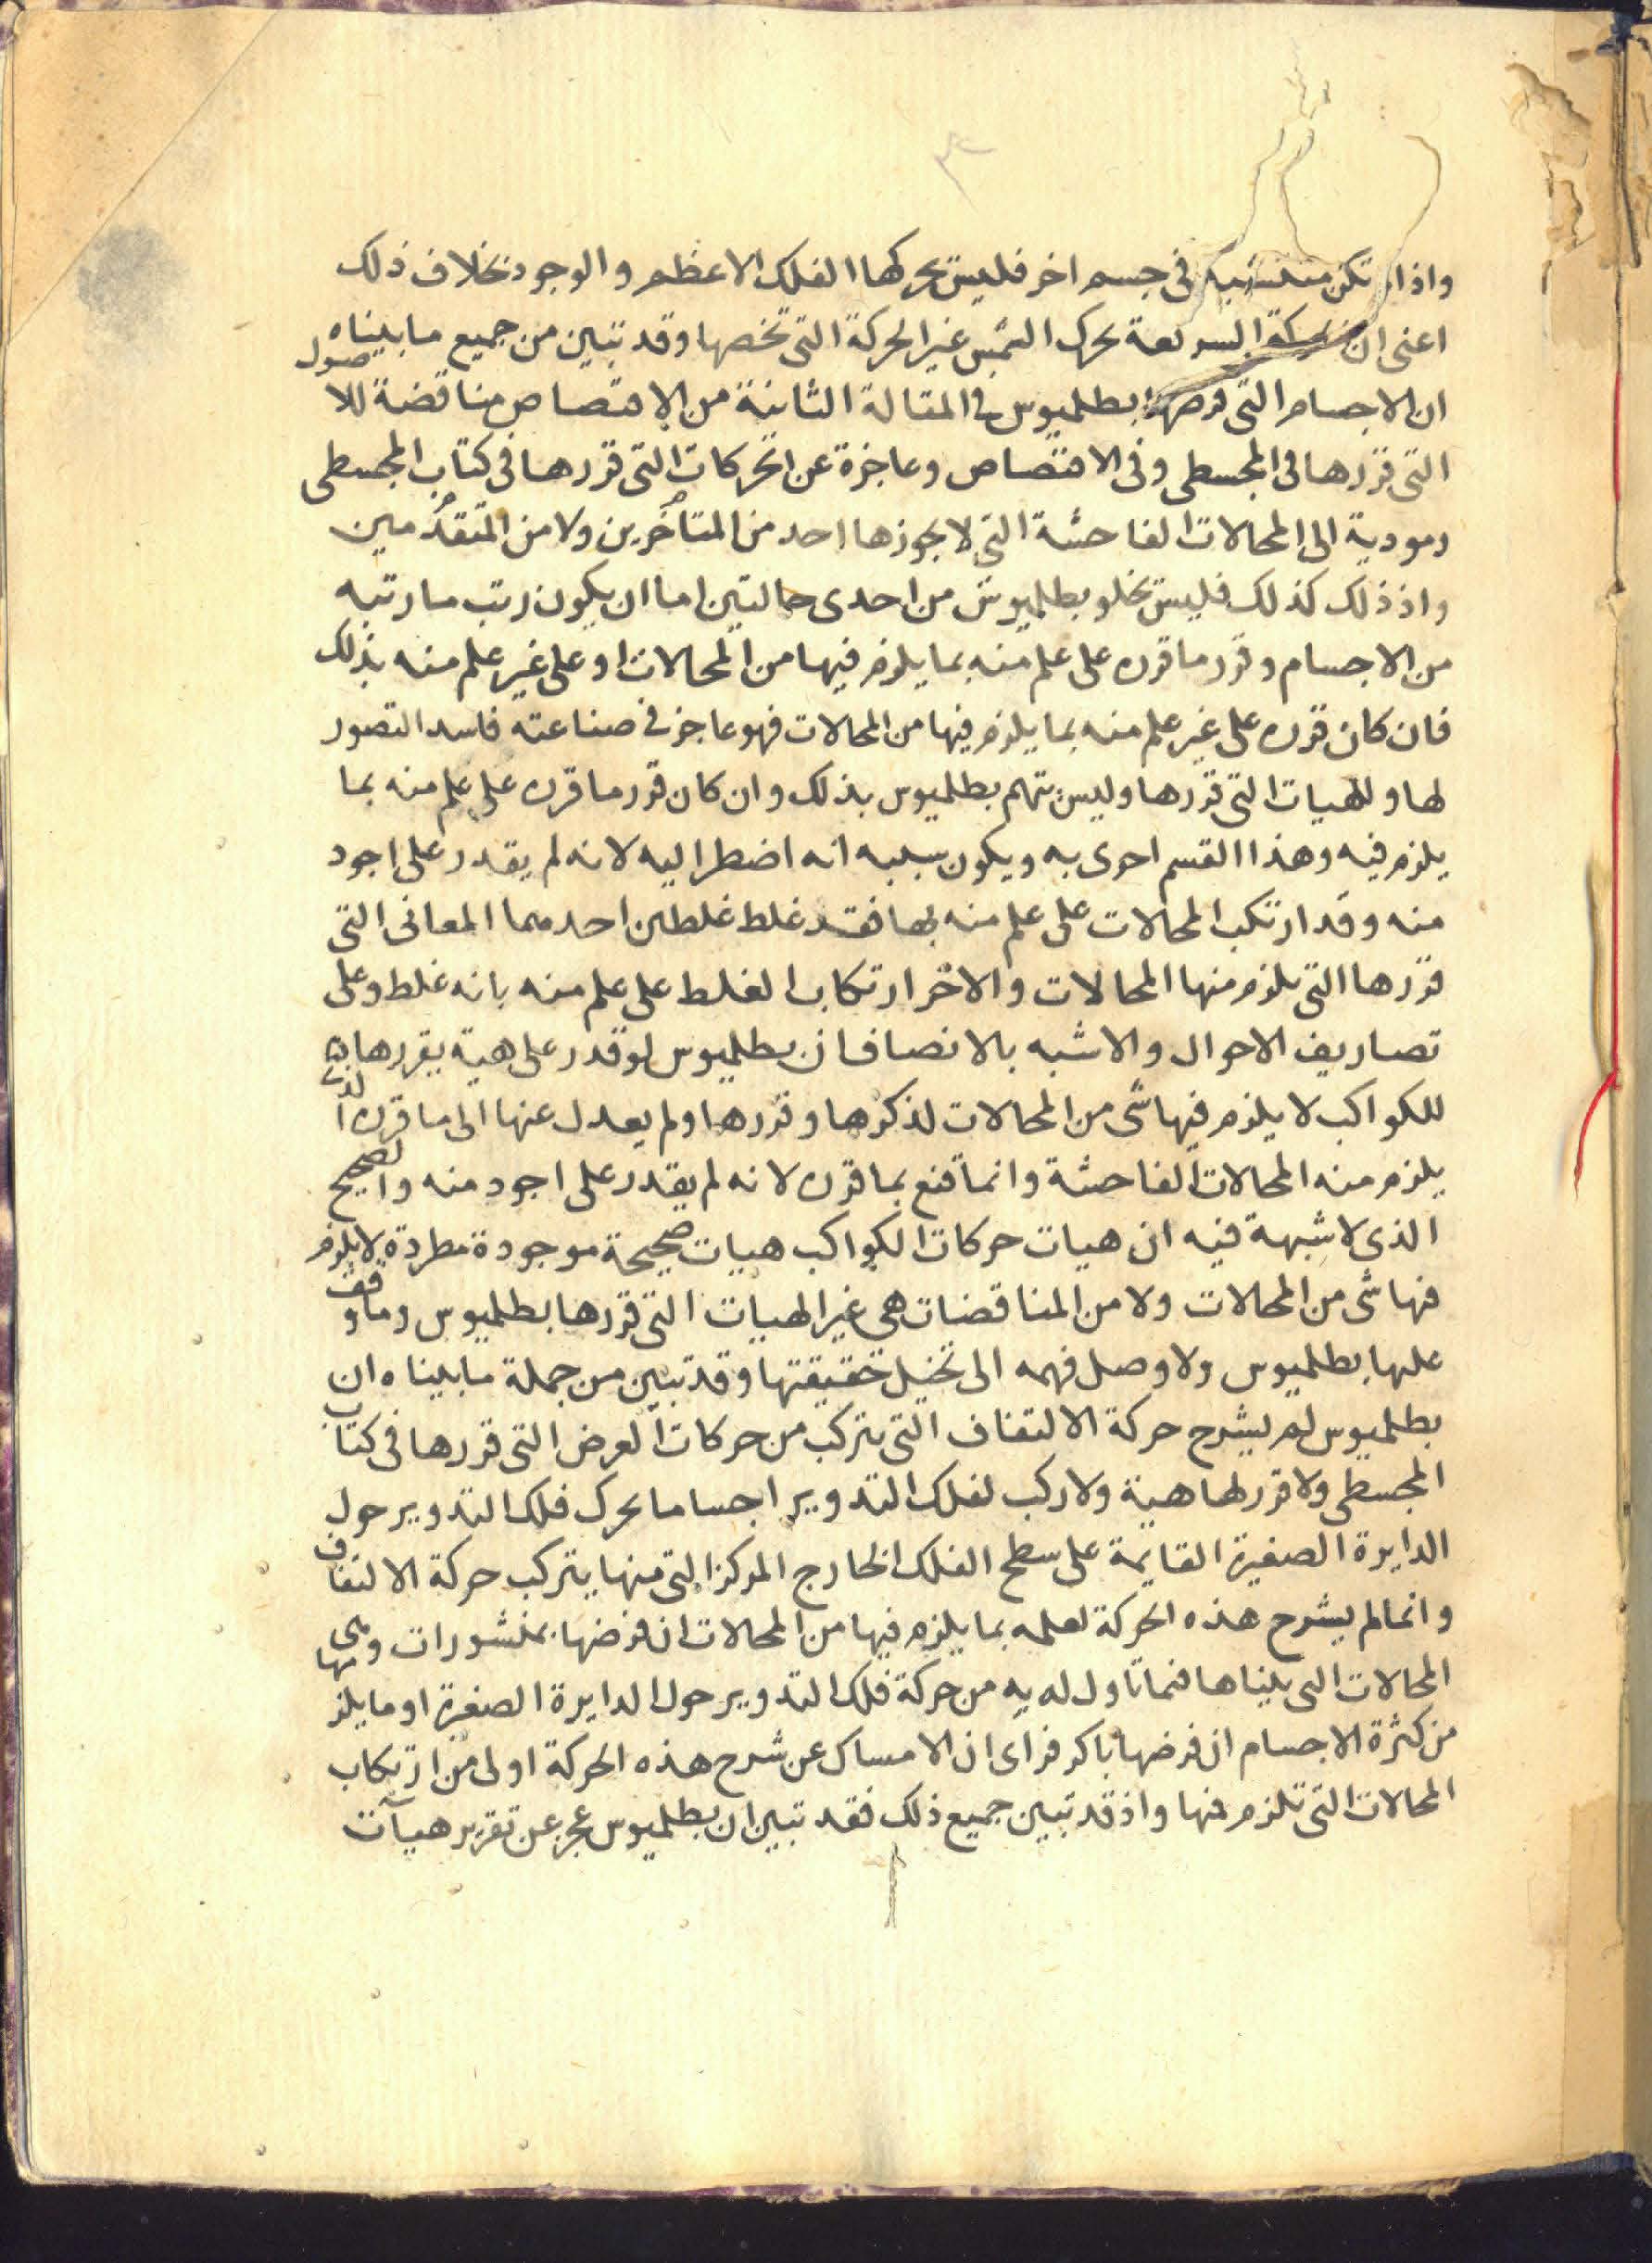 واذا تكن متشبه فى جسم اخر فليس يحركها الفلك الاعظم والوجود بخلاف ذلك
اعنى ان الحركة السريعة تحرك الشمس غير الحركة التى تخصها وقد تبين من جميع ما بيناه
ان الاجسام التى فرضها بطلميوس فى المقالة الثانية من الاقتصاص مناقضة للاصول
التى قررها فى المجسطى وفى الاقتصاص وعاجزة عن الحركات التى قررها فى كتاب المجسطى
ومودية الى المحالات الفاحشة التى لا يجوزها احد من المتأخرين ولا من المتقدمين
واذ ذلك كذلك فليس يخلو بطلميوس من احدى حالتين اما ان يكون رتب ما رتبه
من الاجسام وقرر ما قرره على علم منه بما يلزم فيها من المحالات او على غير علم منه بذلك
فان كان قرره على غير علم منه بما يلزم فيها من المحالات فهو عاجز فى صناعته فاسد التصور
لها وللهيات التى قررها وليس يتهم بطلميوس بذلك وان كان قرر ما قرره على علم منه بما
يلزم فيه وهذا القسم احرى به ويكون سببه انه اضطر اليه لانه لم يقدر على اجود
منه وقد ارتكب المحالات على علم منه بها فقد غلط غلطين احدهما المعانى التى
قررها التى يلزم منها المحالات والاخر ارتكاب الغلط على علم منه بانه غلط وعلى
تصاريف الاحوال والاشبه بالانصاف ان بطلميوس لو قدر على هية يقررها
للكواكب لا يلزم فيها شى من المحالات لذكرها وقررها ولم يعدل عنها الى ما قرره الذى
يلزم منه المحالات الفاحشة وانما قنع بما قرره لانه لم يقدر على اجود منه والصحيح
الذى لا شبهة فيه ان هيات حركات الكواكب هيات صحيحة موجودة مطردة لا يلزم
فيها شى من المحالات ولا من المناقضات هى غير الهيات التى قررها بطلميوس وما وقف
عليها بطلميوس ولا وصل فهمه الى تخيل حقيقتها وقد تبين من جملة ما بيناه ان
بطلميوس لم يشرح حركة الالتفاف التى يتركب من حركات العرض التى قررها فى كتاب
المجسطى ولا قرر لها هية ولا ركب لفلك التدوير اجساما تحرك فلك التدوير حول
الدايرة الصغيرة القايمة على سطح الفلك الخارج المركز التى منها يتركب حركة الالتفاف
وانما لم يشرح هذه الحركة لعلمه بما يلزم فيها من المحالات ان فرضها بمنشورات وهى
المحالات التى بيناها فيما تاول له به من حركة فلك التدوير حول الدايرة الصغيرة او ما يلزمها
من كثرة الاجسام ان فرضها باكر فراى ان الامساك عن شرح هذه الحركة اولى من ارتكاب
المحالات التى تلزم فيها واذ قد تبين جميع ذلك فقد تبين ان بطلميوس عجز عن تقرير هيآت